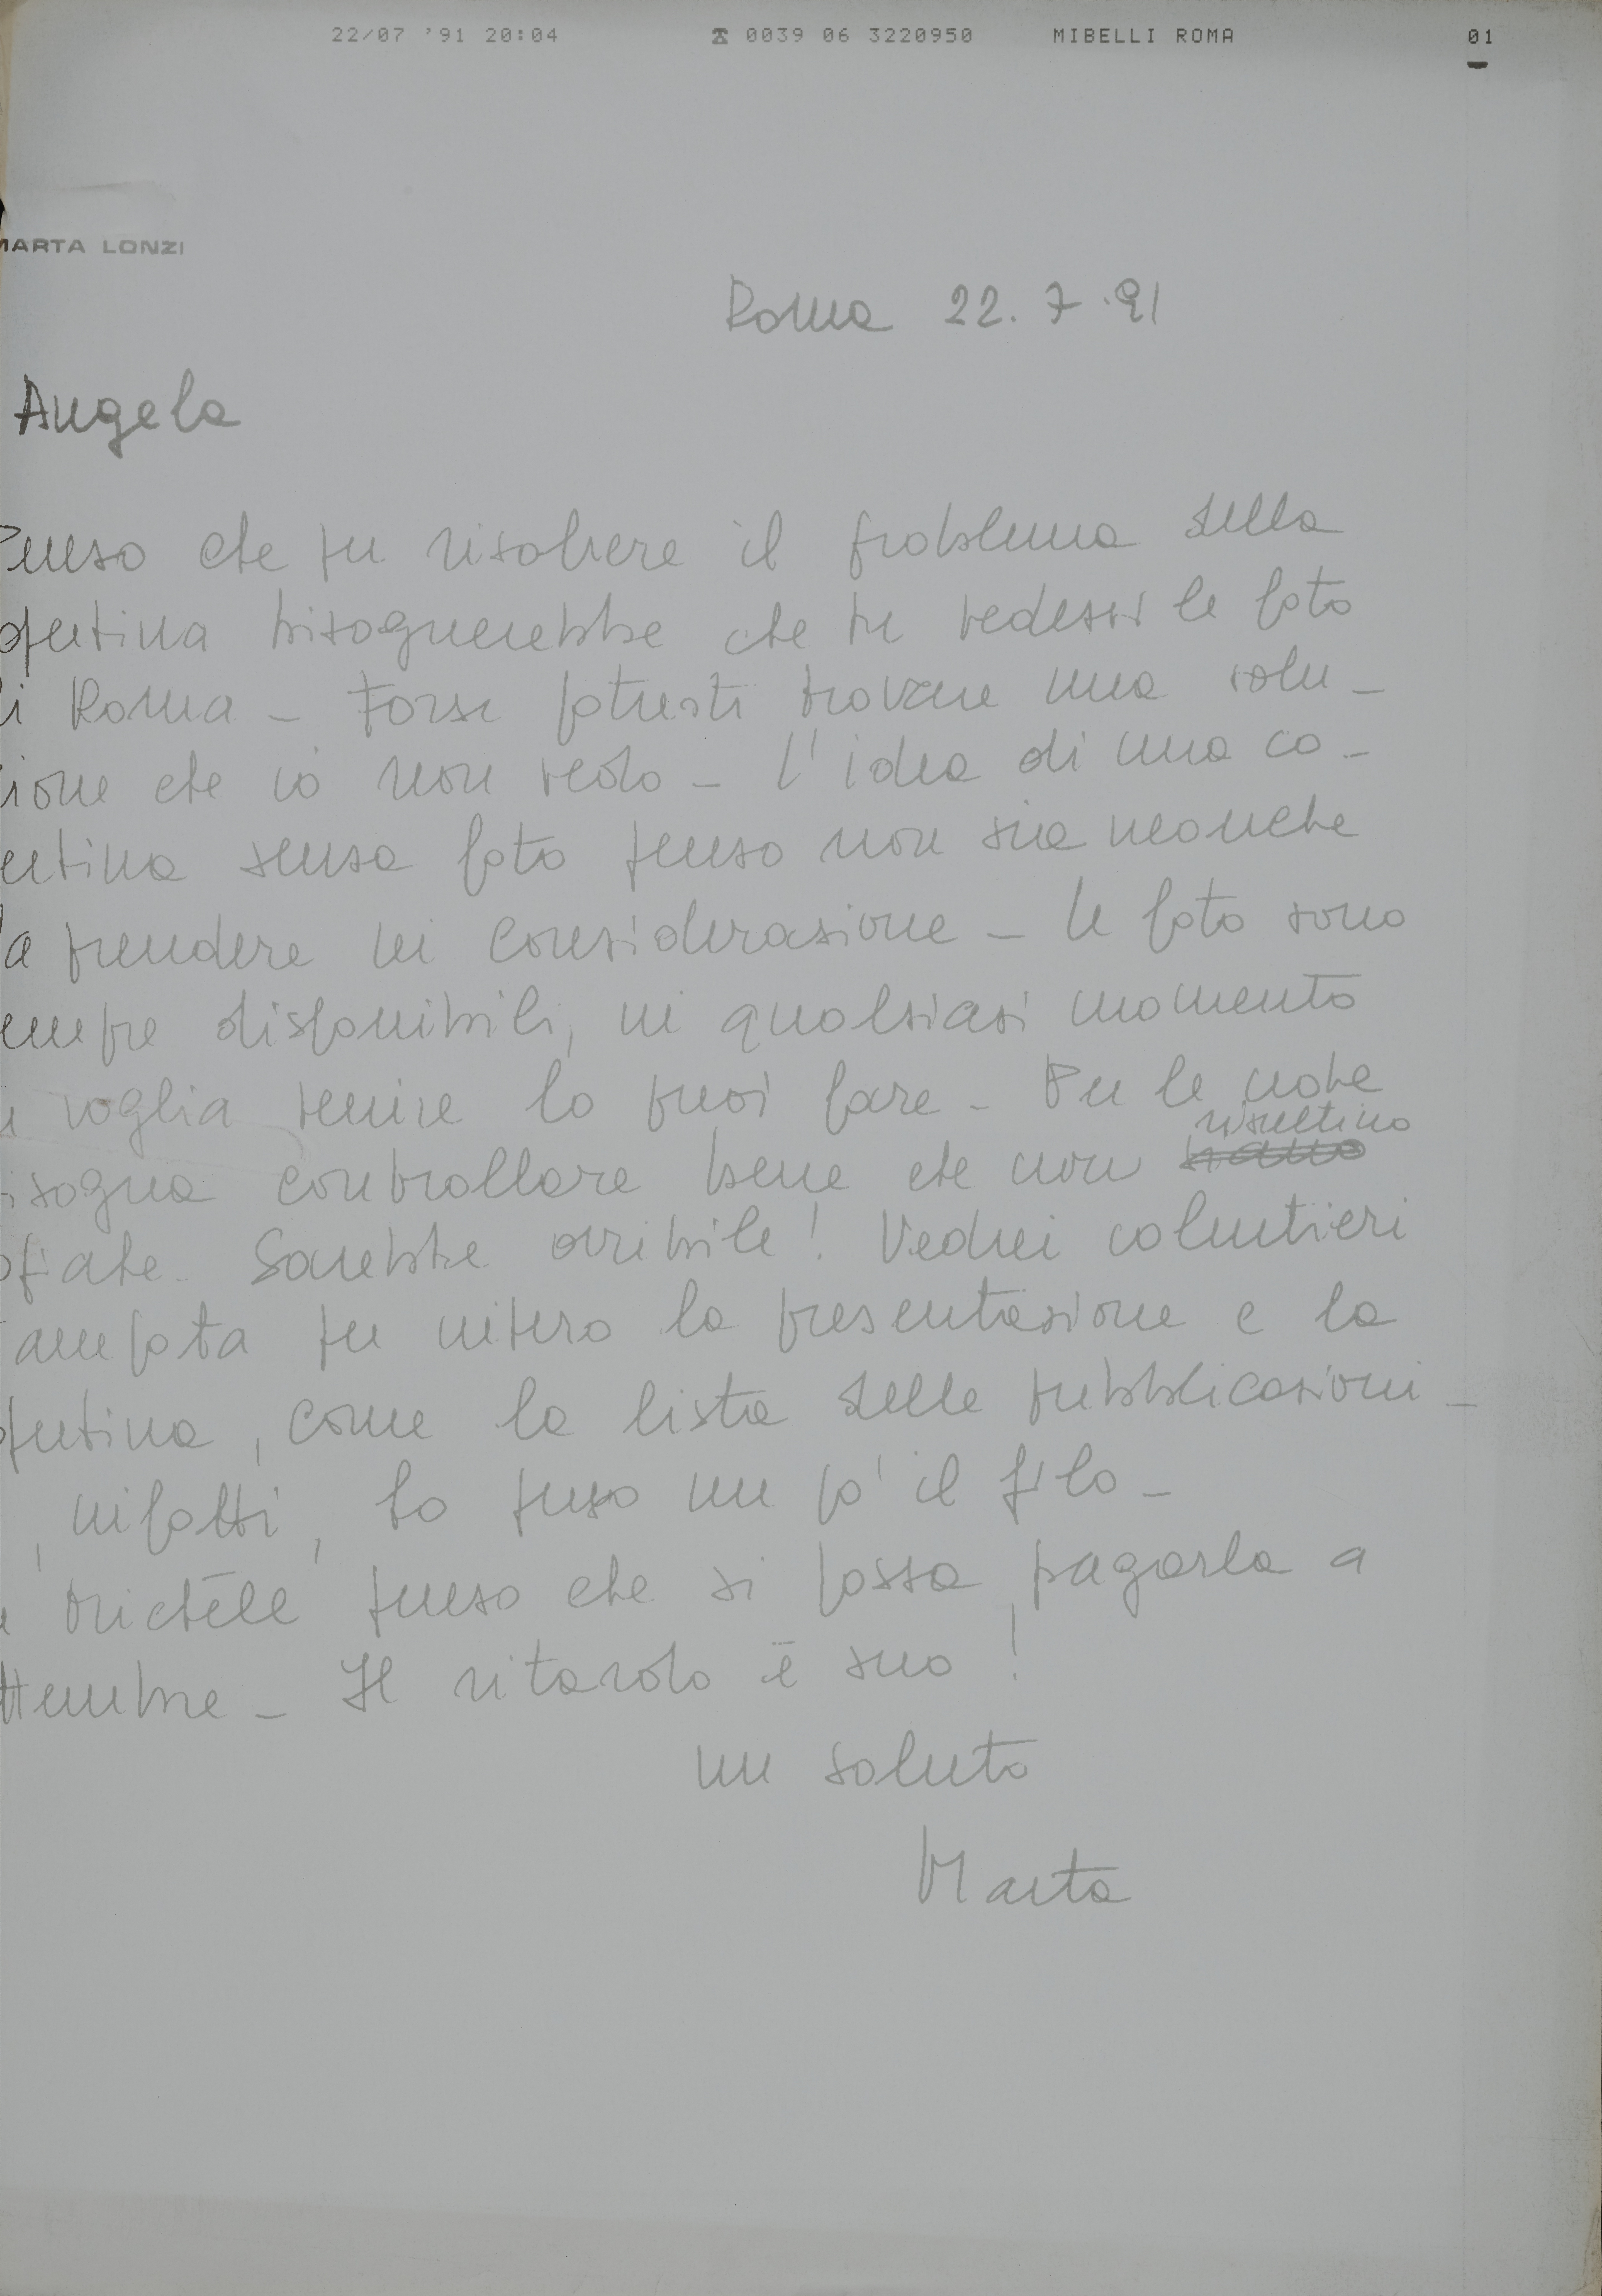 22/07 '91 20:04 ☎ 0039 06 3220950 MIBELLI ROMA 01
MARTA LONZI
Roma 22.7.91
Angela
Penso che per risolvere il problema della
opertina bisognerebbe che tu vedessi le foto
di Roma - Forse potresti trovare una solu-
zione che io non vedo - l'idea di una co-
ertina senza foto penso non sia neanche
da prendere in considerazione - le foto sono
empre disponibili, in qualsiasi momento
voglia venire lo puoi fare - Per le note
isogna controllare bene che non risultino
opiate. Sarebbe orribile! Vedrei volentieri
ampata per intero la presentazione e la
opertina, come la lista delle pubblicazioni -
, infatti, ho perso un po' il filo -
penso che si possa pagarla a
ttembre - Il ritardo è suo!
un saluto
Marta